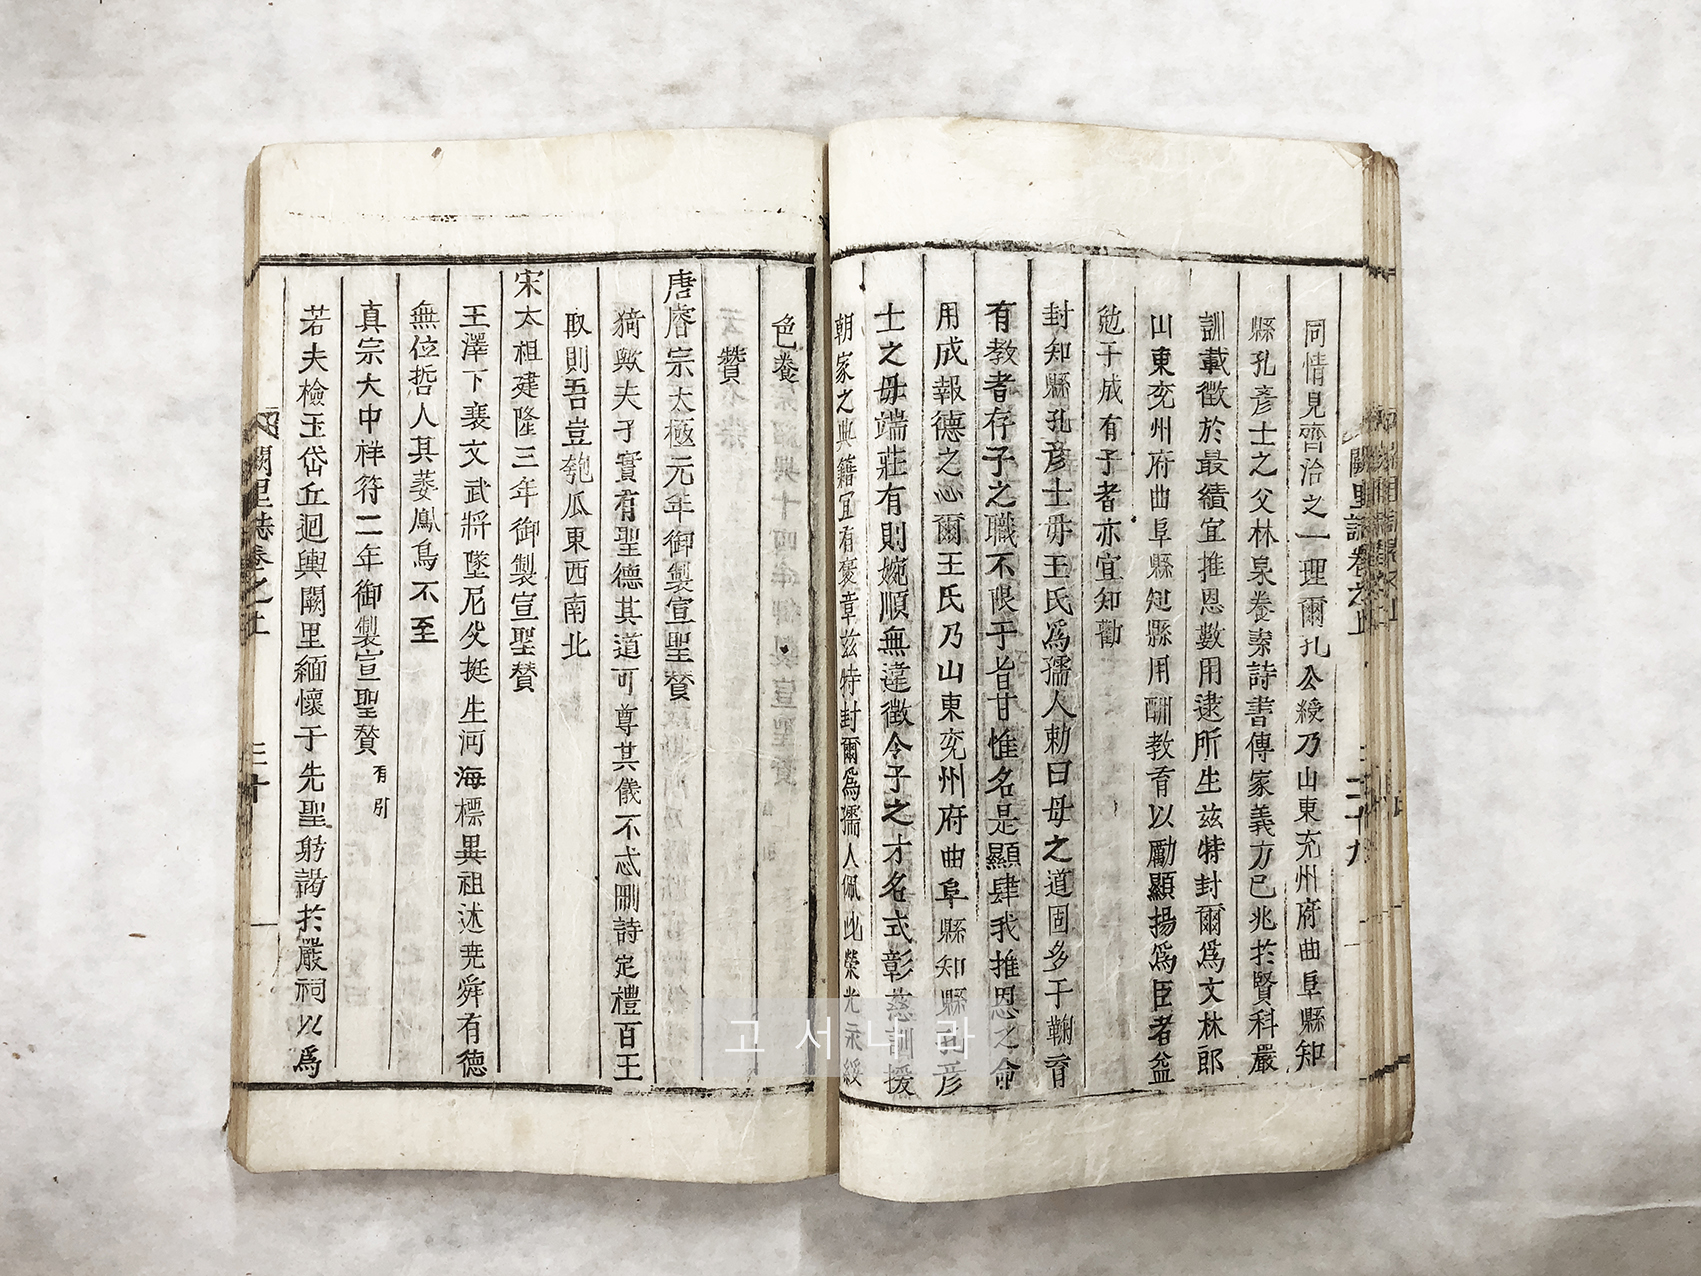 同情見齊洽之一理爾孔公綬乃山東兖州府曲阜縣知
縣孔彦士之父林泉養素詩書傳家義方已兆於賢科嚴
訓載徵於最績宜推恩數用逮所生兹特封爾爲文林郎
山東兖州府曲阜縣知縣用酬教育以勵顯揚爲臣者益
勉于成有子者亦宜知勸
封知縣孔彦士毋王氏爲孺人勅曰母之道固多于鞠育
有教者存子之職不限于旨甘惟名是顯肆我推恩之命
用成報德之心爾王氏乃山東兖州府曲阜縣知縣孔彦
士之毋端莊有則婉順無違徵令子之才名式彰慈訓援
朝家之典籍宜有褒章兹特封爾爲孺人佩此榮光永綏
色養
贊
唐睿宗太極元年御製宣聖賛
猗歟夫子實有聖德其道可尊其儀不忒刪詩定禮百王
取則吾豈匏瓜東西南北
宋太祖建隆三年御製宣聖賛
王澤下衰文武將墜尼父挺生河海標異祖述尭舜有德
無位哲人其萎鳳鳥不至
真宗大中祥符二年御製宣聖賛 有引
若夫檢玉岱丘迴輿闕里緬懷于先聖躬謁於嚴祠以爲
闕里誌卷之上
三十
고서나라